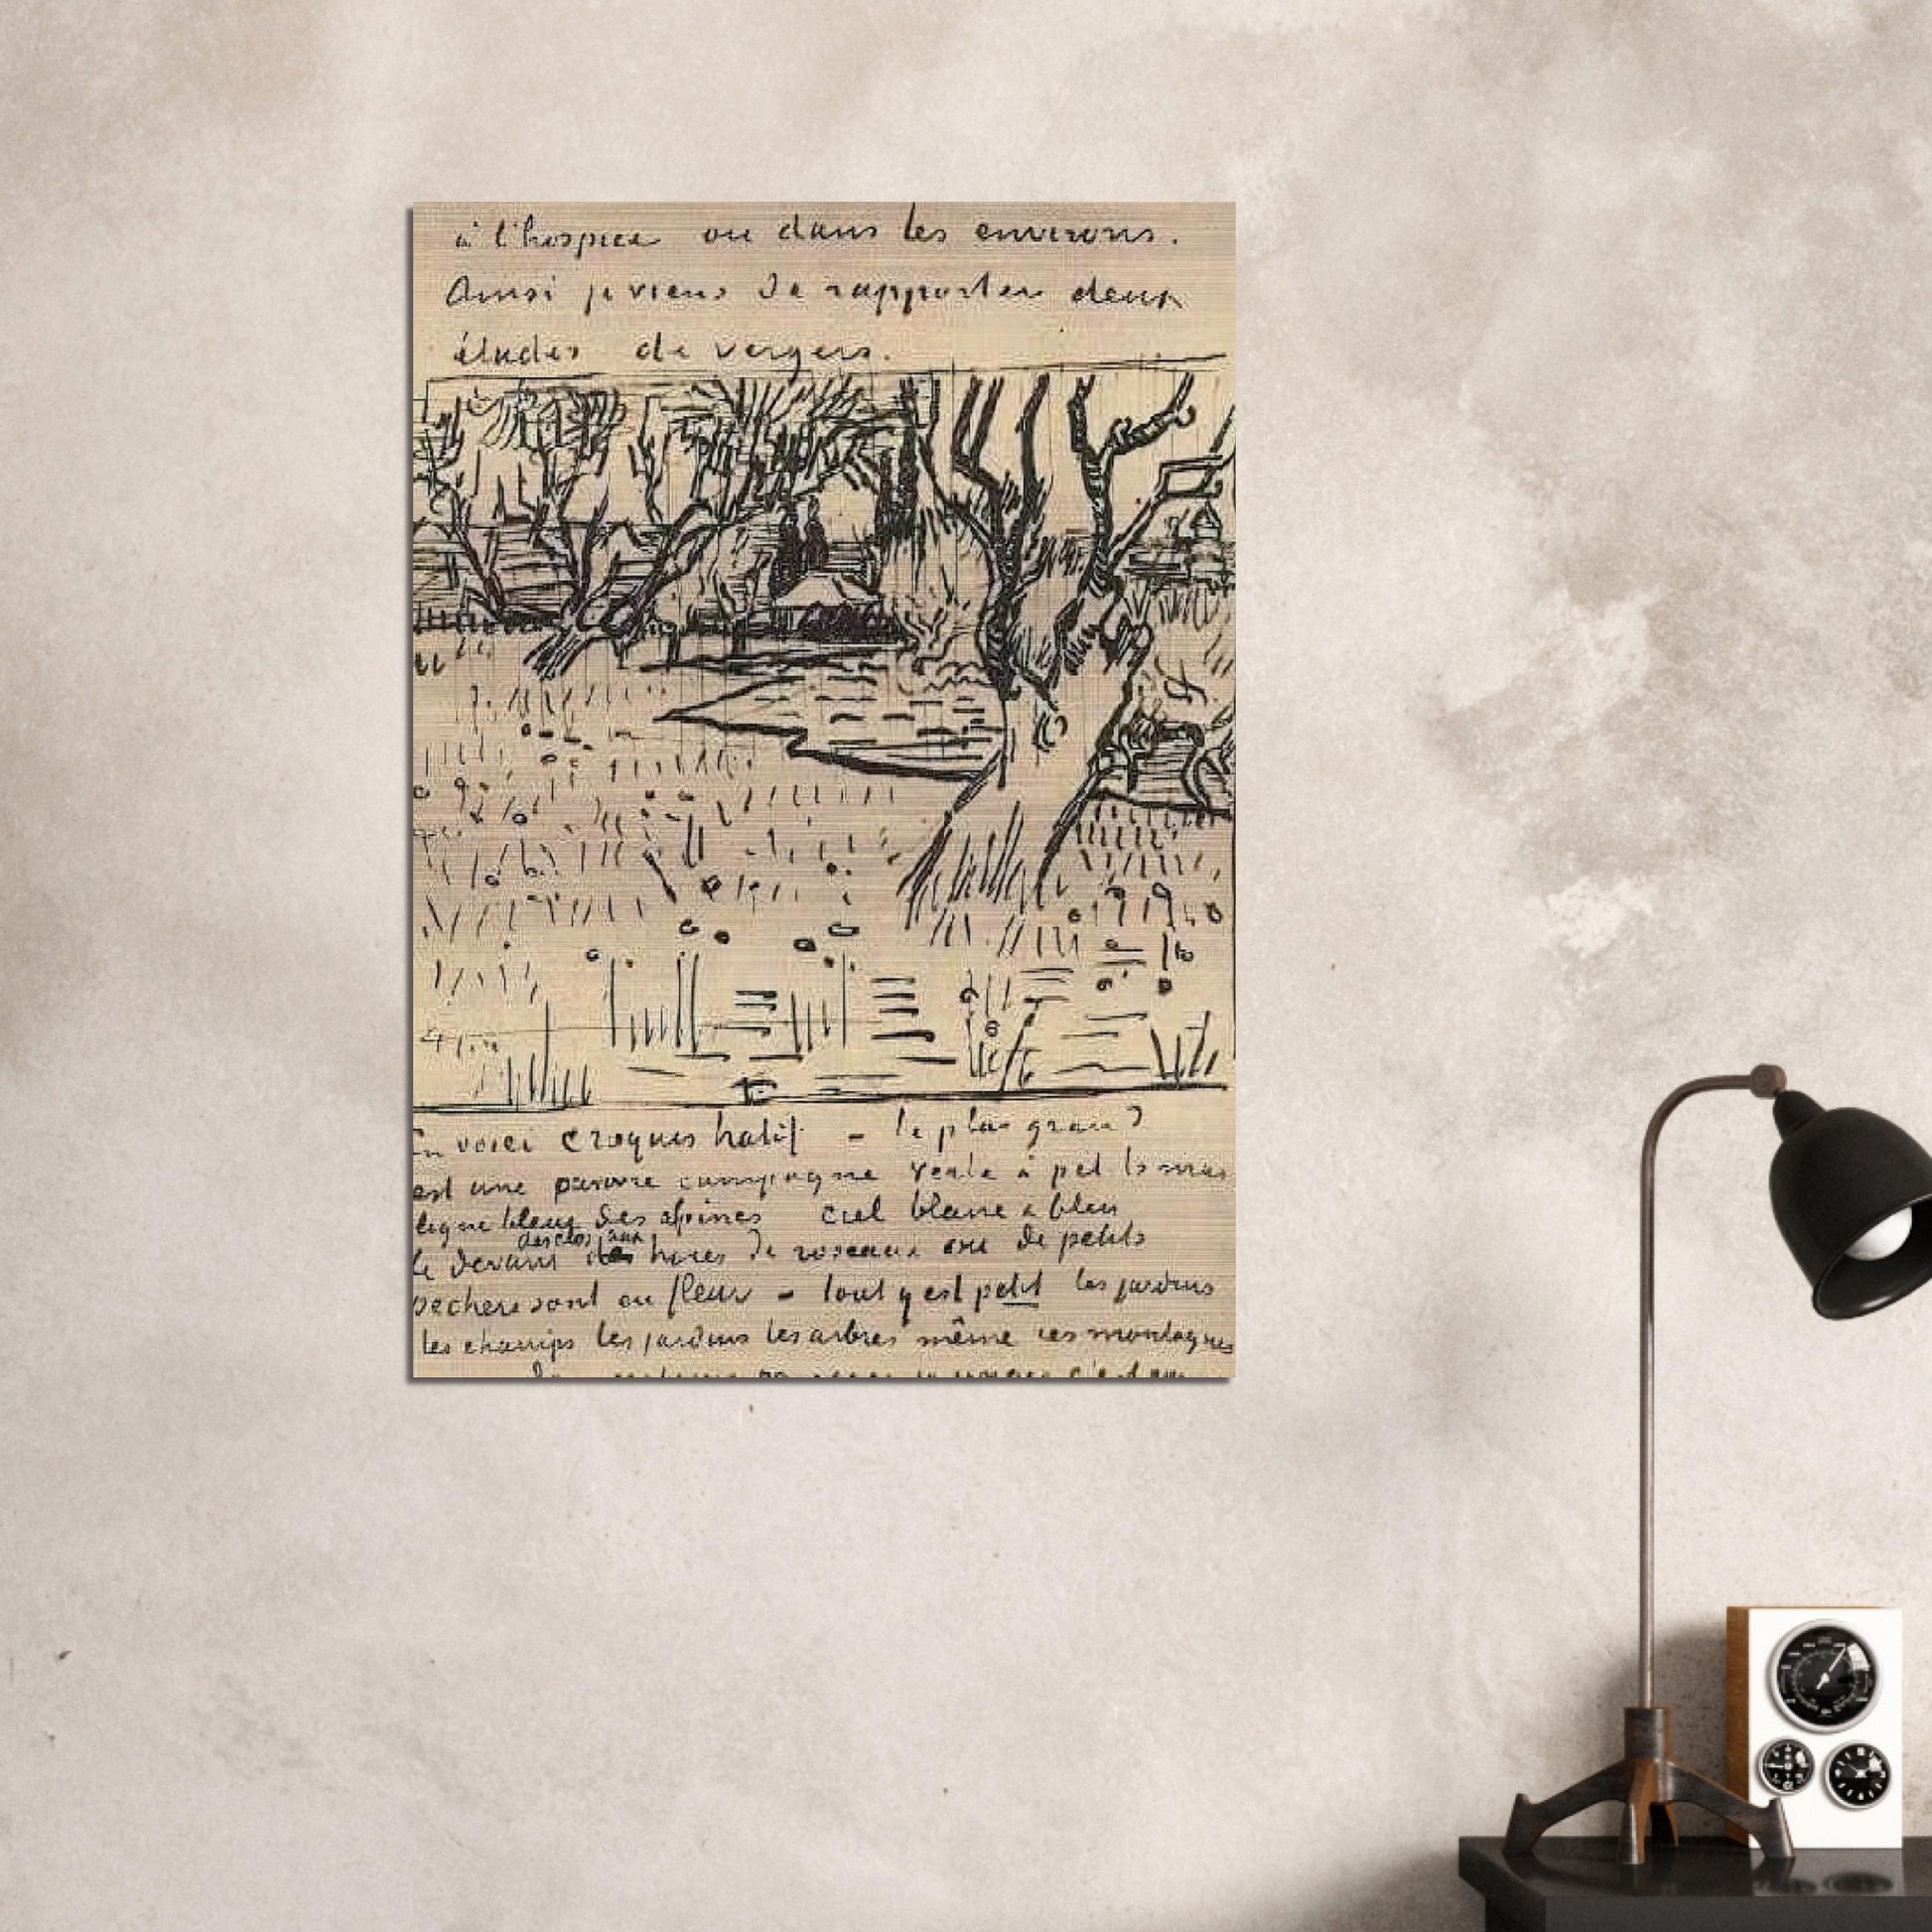 à l'hospice ou dans les environs.
Ainsi je viens de rapporter deux
études de vergers.
En voici croquis hatif - le plus grand
est une pauvre campagne verte à petits mas
ligne bleue des alpines ciel blanc & bleu
des clos aux
le devant haies de roseaux où de petits
pechers sont en fleur - tout y est petit les jardins
les champs les jardins les arbres même ces montagnes